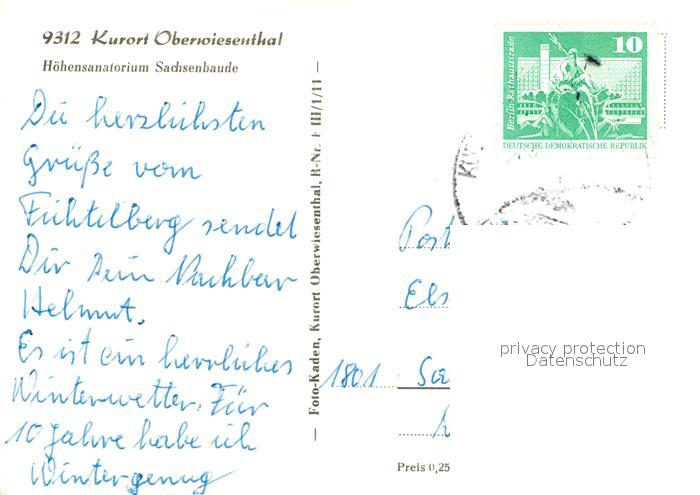 9312 Kurort Oberwiesenthal
Höhensanatorium Sachsenbaude
Die herzlichsten
Grüße vom
Fichtelberg sendet
Dir Dein Nachbar
Helmut.
Es ist ein herrliches
Winterwetter. Für
10 Jahre habe ich
Winter genug
Foto-Kaden, Kurort Oberwiesenthal, R-Nr. F III/1/11
Berlin-Rathausstraße
10
DEUTSCHE DEMOKRATISCHE REPUBLIK
Post
Els
1801
Preis 0,25
privacy protection
Datenschutz